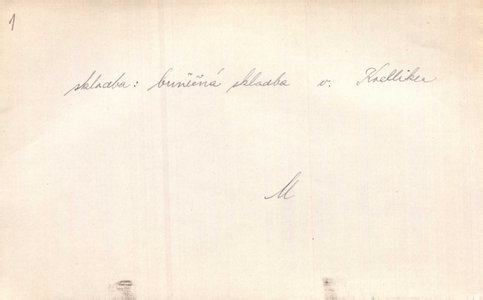 1
skladba: buněčná skladba v. Koelliker
M